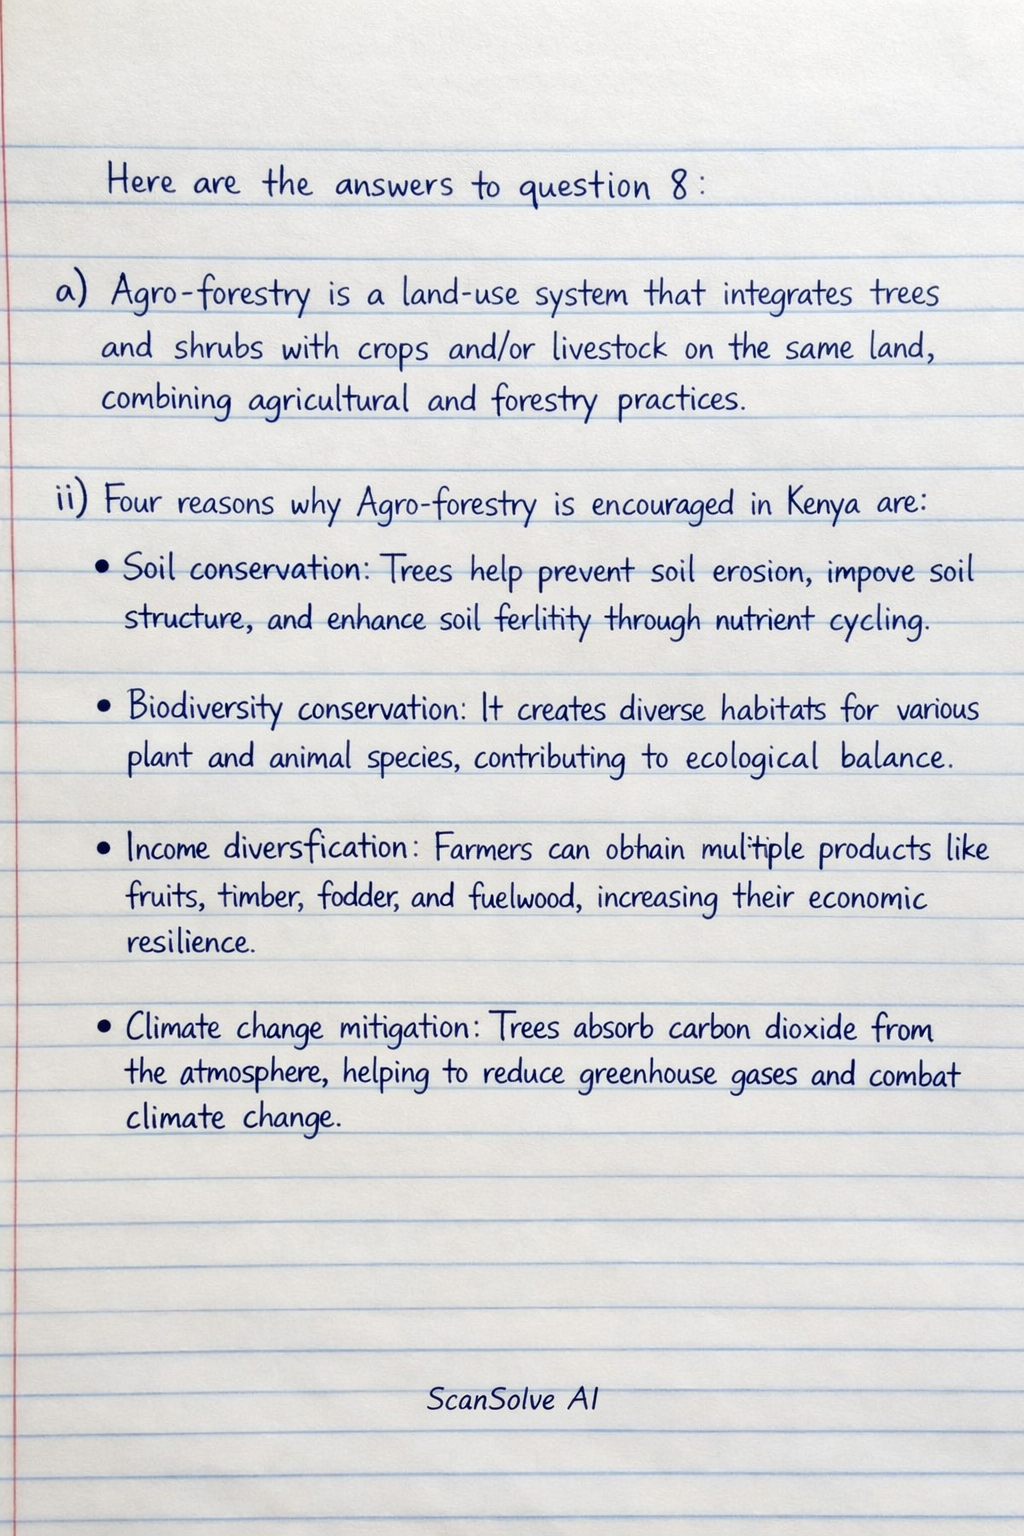 Here are the answers to question 8:
a) Agro-forestry is a land-use system that integrates trees
and shrubs with crops and/or livestock on the same land,
combining agricultural and forestry practices.
ii) Four reasons why Agro-forestry is encouraged in Kenya are:
• Soil conservation: Trees help prevent soil erosion, impove soil
structure, and enhance soil ferlitity through nutrient cycling.
• Biodiversity conservation: It creates diverse habitats for various
plant and animal species, contributing to ecological balance.
• Income diversfication: Farmers can obhain multiple products like
fruits, timber, fodder, and fuelwood, increasing their economic
resilience.
• Climate change mitigation: Trees absorb carbon dioxide from
the atmosphere, helping to reduce greenhouse gases and combat
climate change.
ScanSolve AI